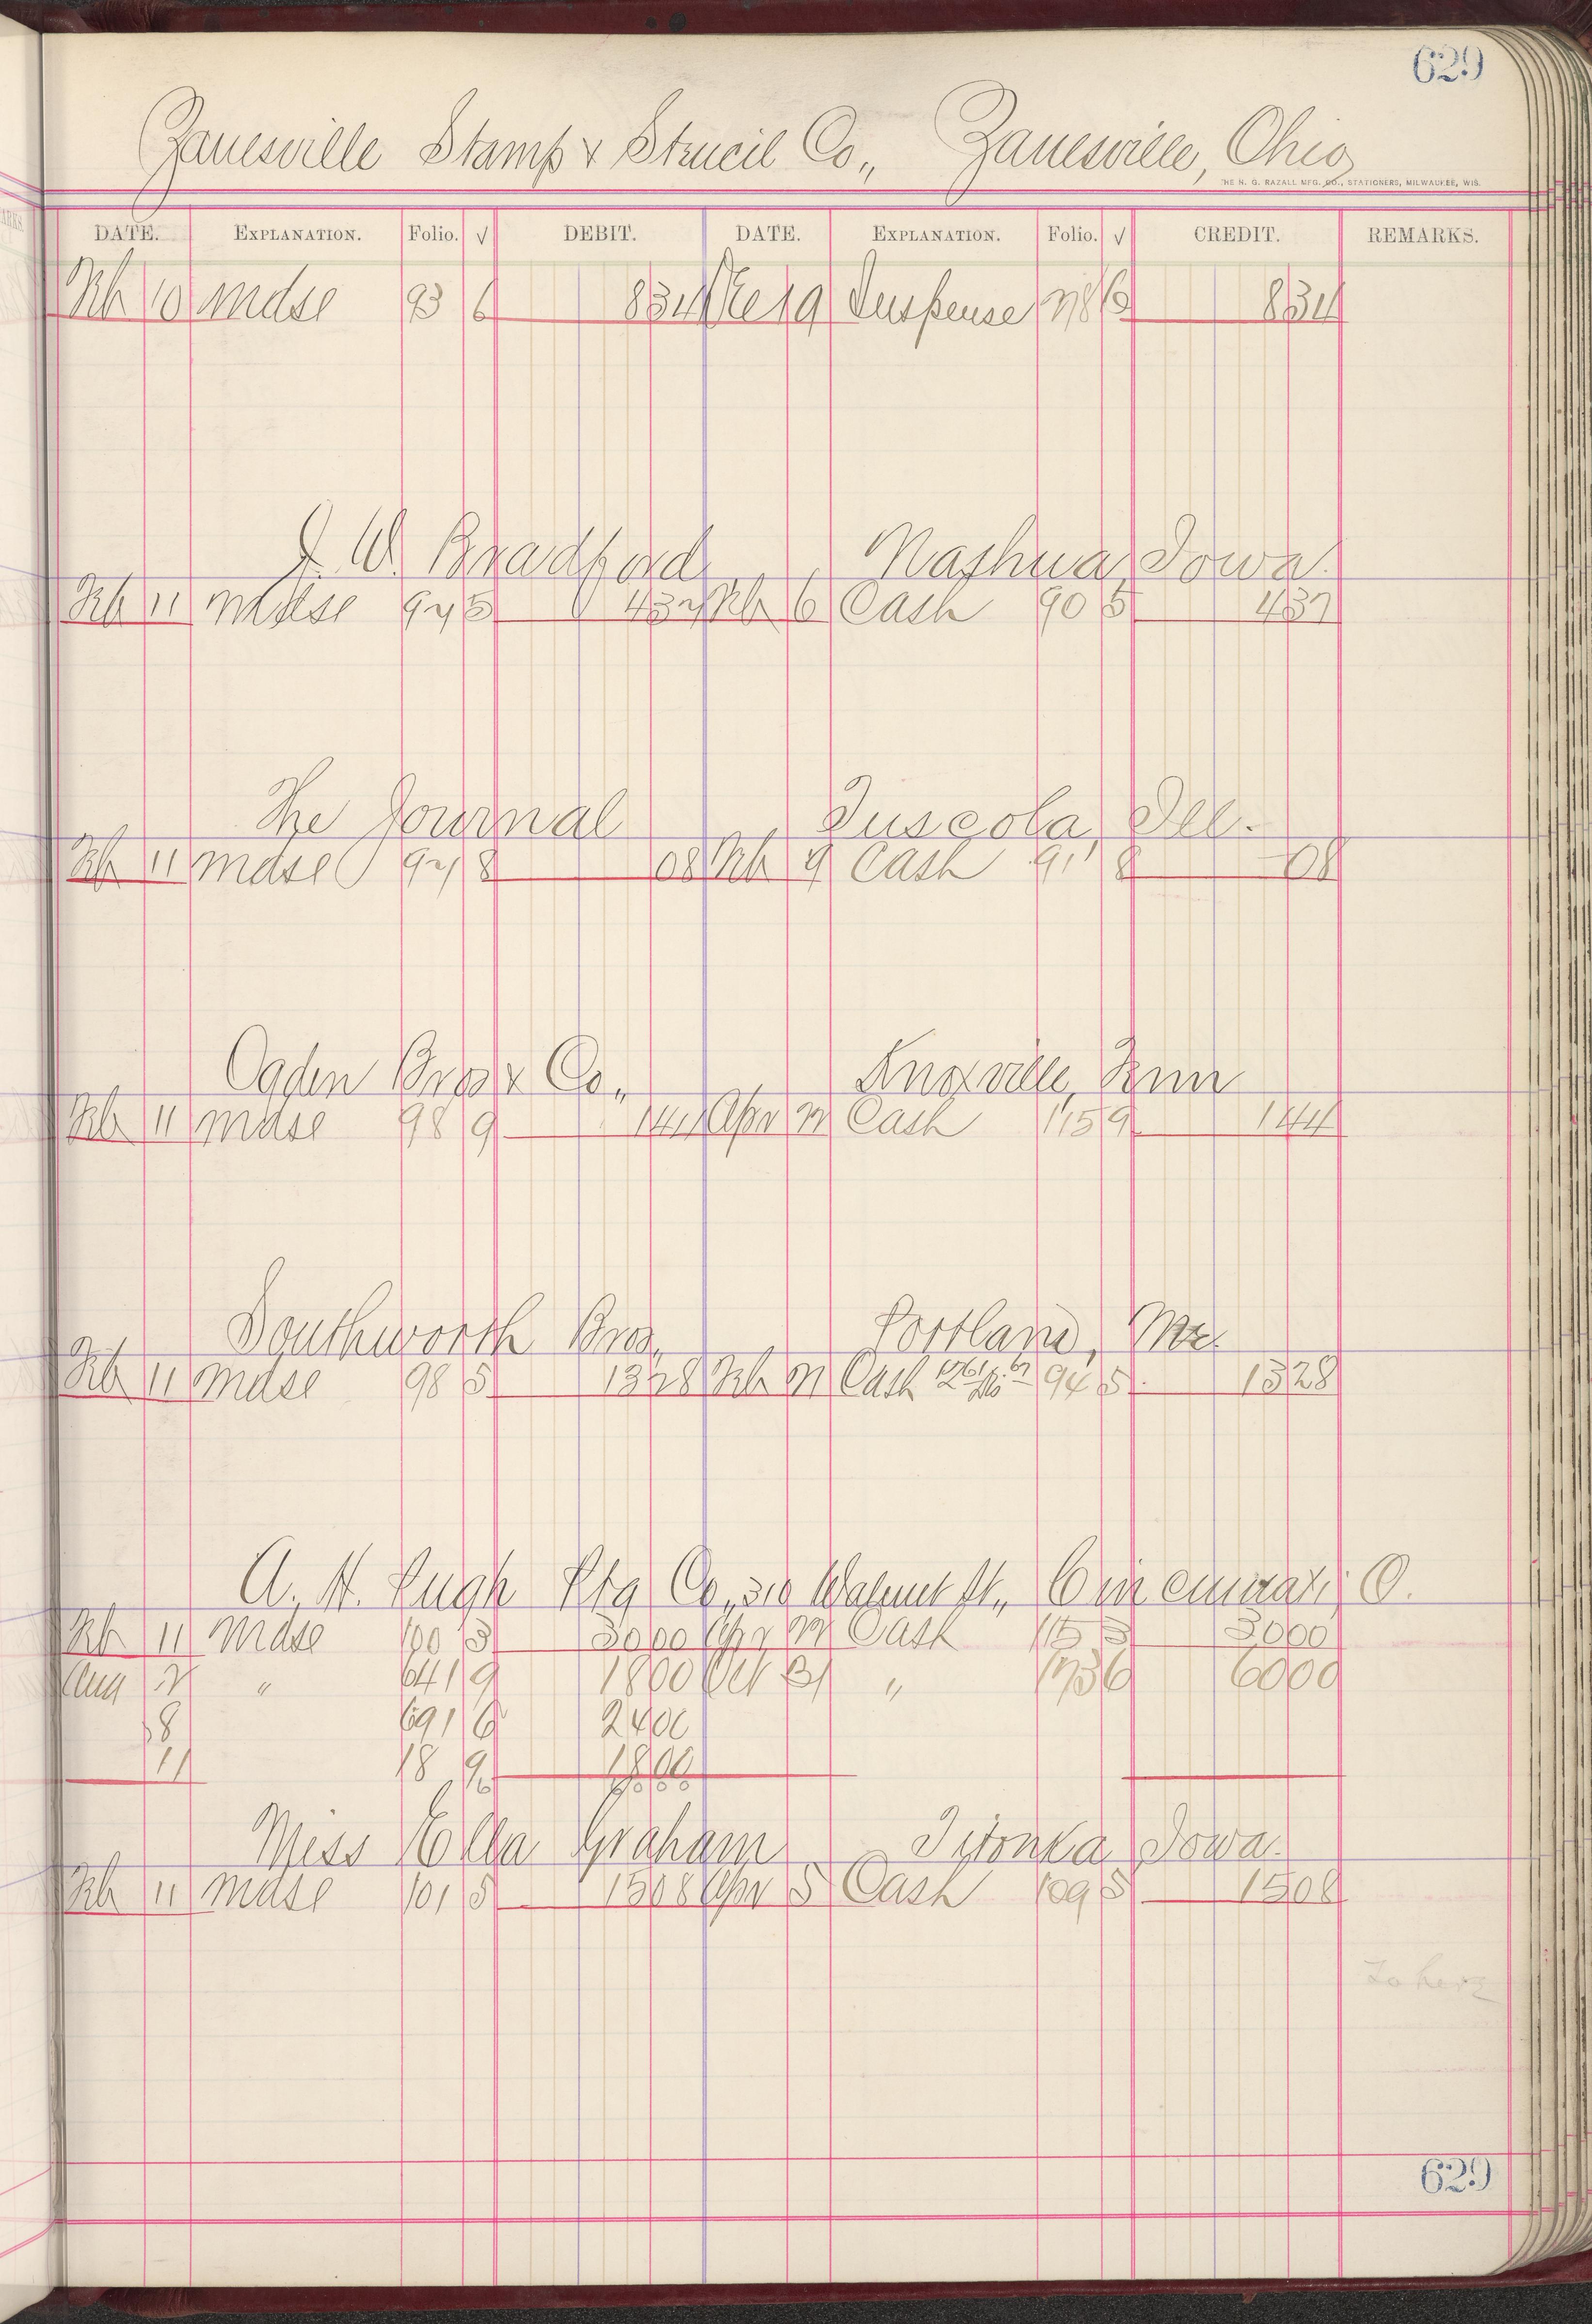 629
Zanesville Stamp & Stencil Co., Zanesville, Ohio
THE H. G. RAZALL MFG. CO., STATIONERS, MILWAUKEE, WIS.
DATE. EXPLANATION. Folio. √ DEBIT. DATE. EXPLANATION. Folio. √ CREDIT. REMARKS.
Feb 10 Mdse 93 6 834 Dec 19 Suspense 8 34
J. W. Bradford, Nashua, Iowa.
Feb 11 Mdse 94 5 437 Feb 6 Cash 90 5 437
The Journal Tuscola, Ill.
Feb 11 Mdse 94 8 08 Feb 9 Cash 91 8 08
Ogden Bros & Co., Knoxville, Tenn
Feb 11 Mdse 98 9 144 Apr Cash 115 9 144
Southworth Bros., Portland, Me.
Feb 11 Mdse 98 5 1328 Feb Cash 94 5 1328
A. H. Pugh Ptg Co., 310 Walnut St., Cincinnati, O.
Feb 11 Mdse 100 3 3000 Apr Cash 115 3 3000
Aug 2 " 641 9 1800 Oct 31 " 6000
8 691 6 2400
11 18 9 1800
6000
Miss Ella Graham Titonka, Iowa.
Feb 11 Mdse 101 5 1508 Apr 5 Cash 109 5 1508
629